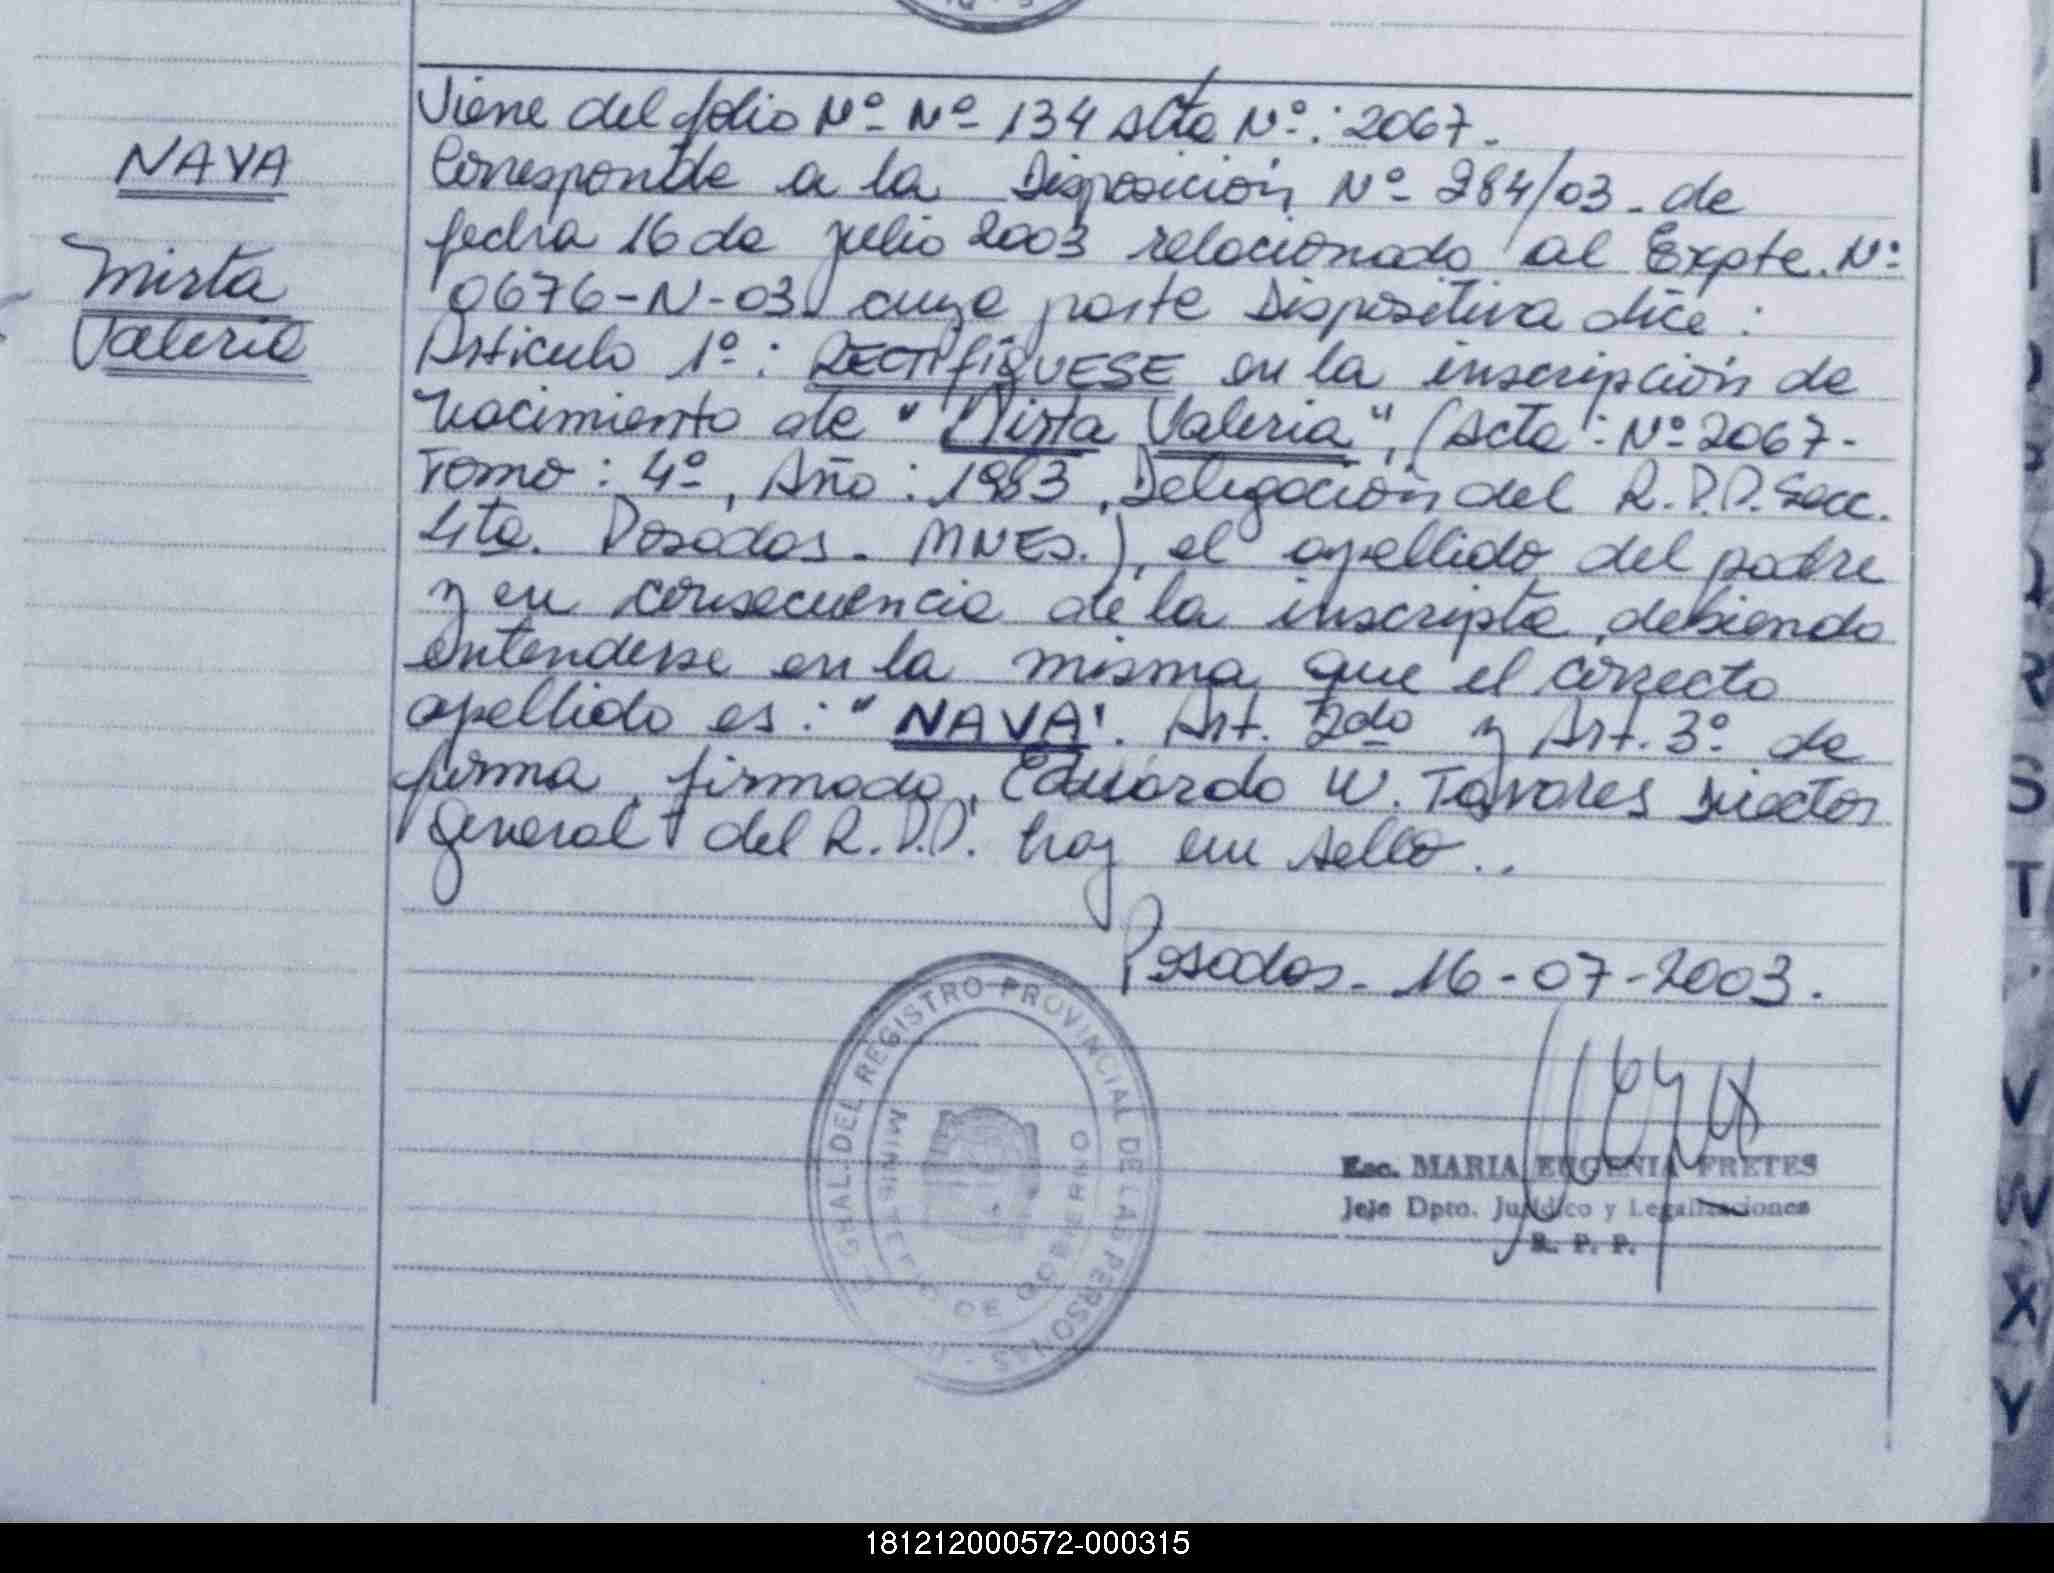 Viene del folio Nº Nº 134 Acta Nº: 2067.
NAVA
Corresponde a la Disposición Nº 284/03. de
fecha 16 de julio 2003 relacionado al Expte. Nº
Mirta
0676-N-03 cuya parte Dispositiva dice:
Valeria
Artículo 1º: RECTIFÍQUESE en la inscripción de
nacimiento de "Mirta Valeria", (Acta: Nº 2067-
Tomo: 4º, Año: 1983, Delegación del R.P.P. Secc.
4ta. Posadas. MNES.), el apellido del padre
y en consecuencia de la inscripta, debiendo
entenderse en la misma que el correcto
apellido es: "NAVA". Art. 2do y Art. 3º de
forma, firmado, Eduardo W. Tavares Director
general del R.P.P. hay un sello..
Posadas. 16-07-2003.
GRAL. DEL REGISTRO PROVINCIAL DE LAS PERSONAS
MINISTERIO DE GOBIERNO
Esc. MARIA EUGENIA FRETES
Jefe Dpto. Jurídico y Legalizaciones
R. P. P.
R
S
T
V
W
X
Y
181212000572-000315